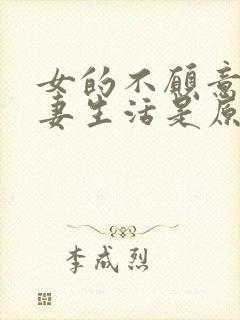 女的不愿意
妻生活是原
李成烈